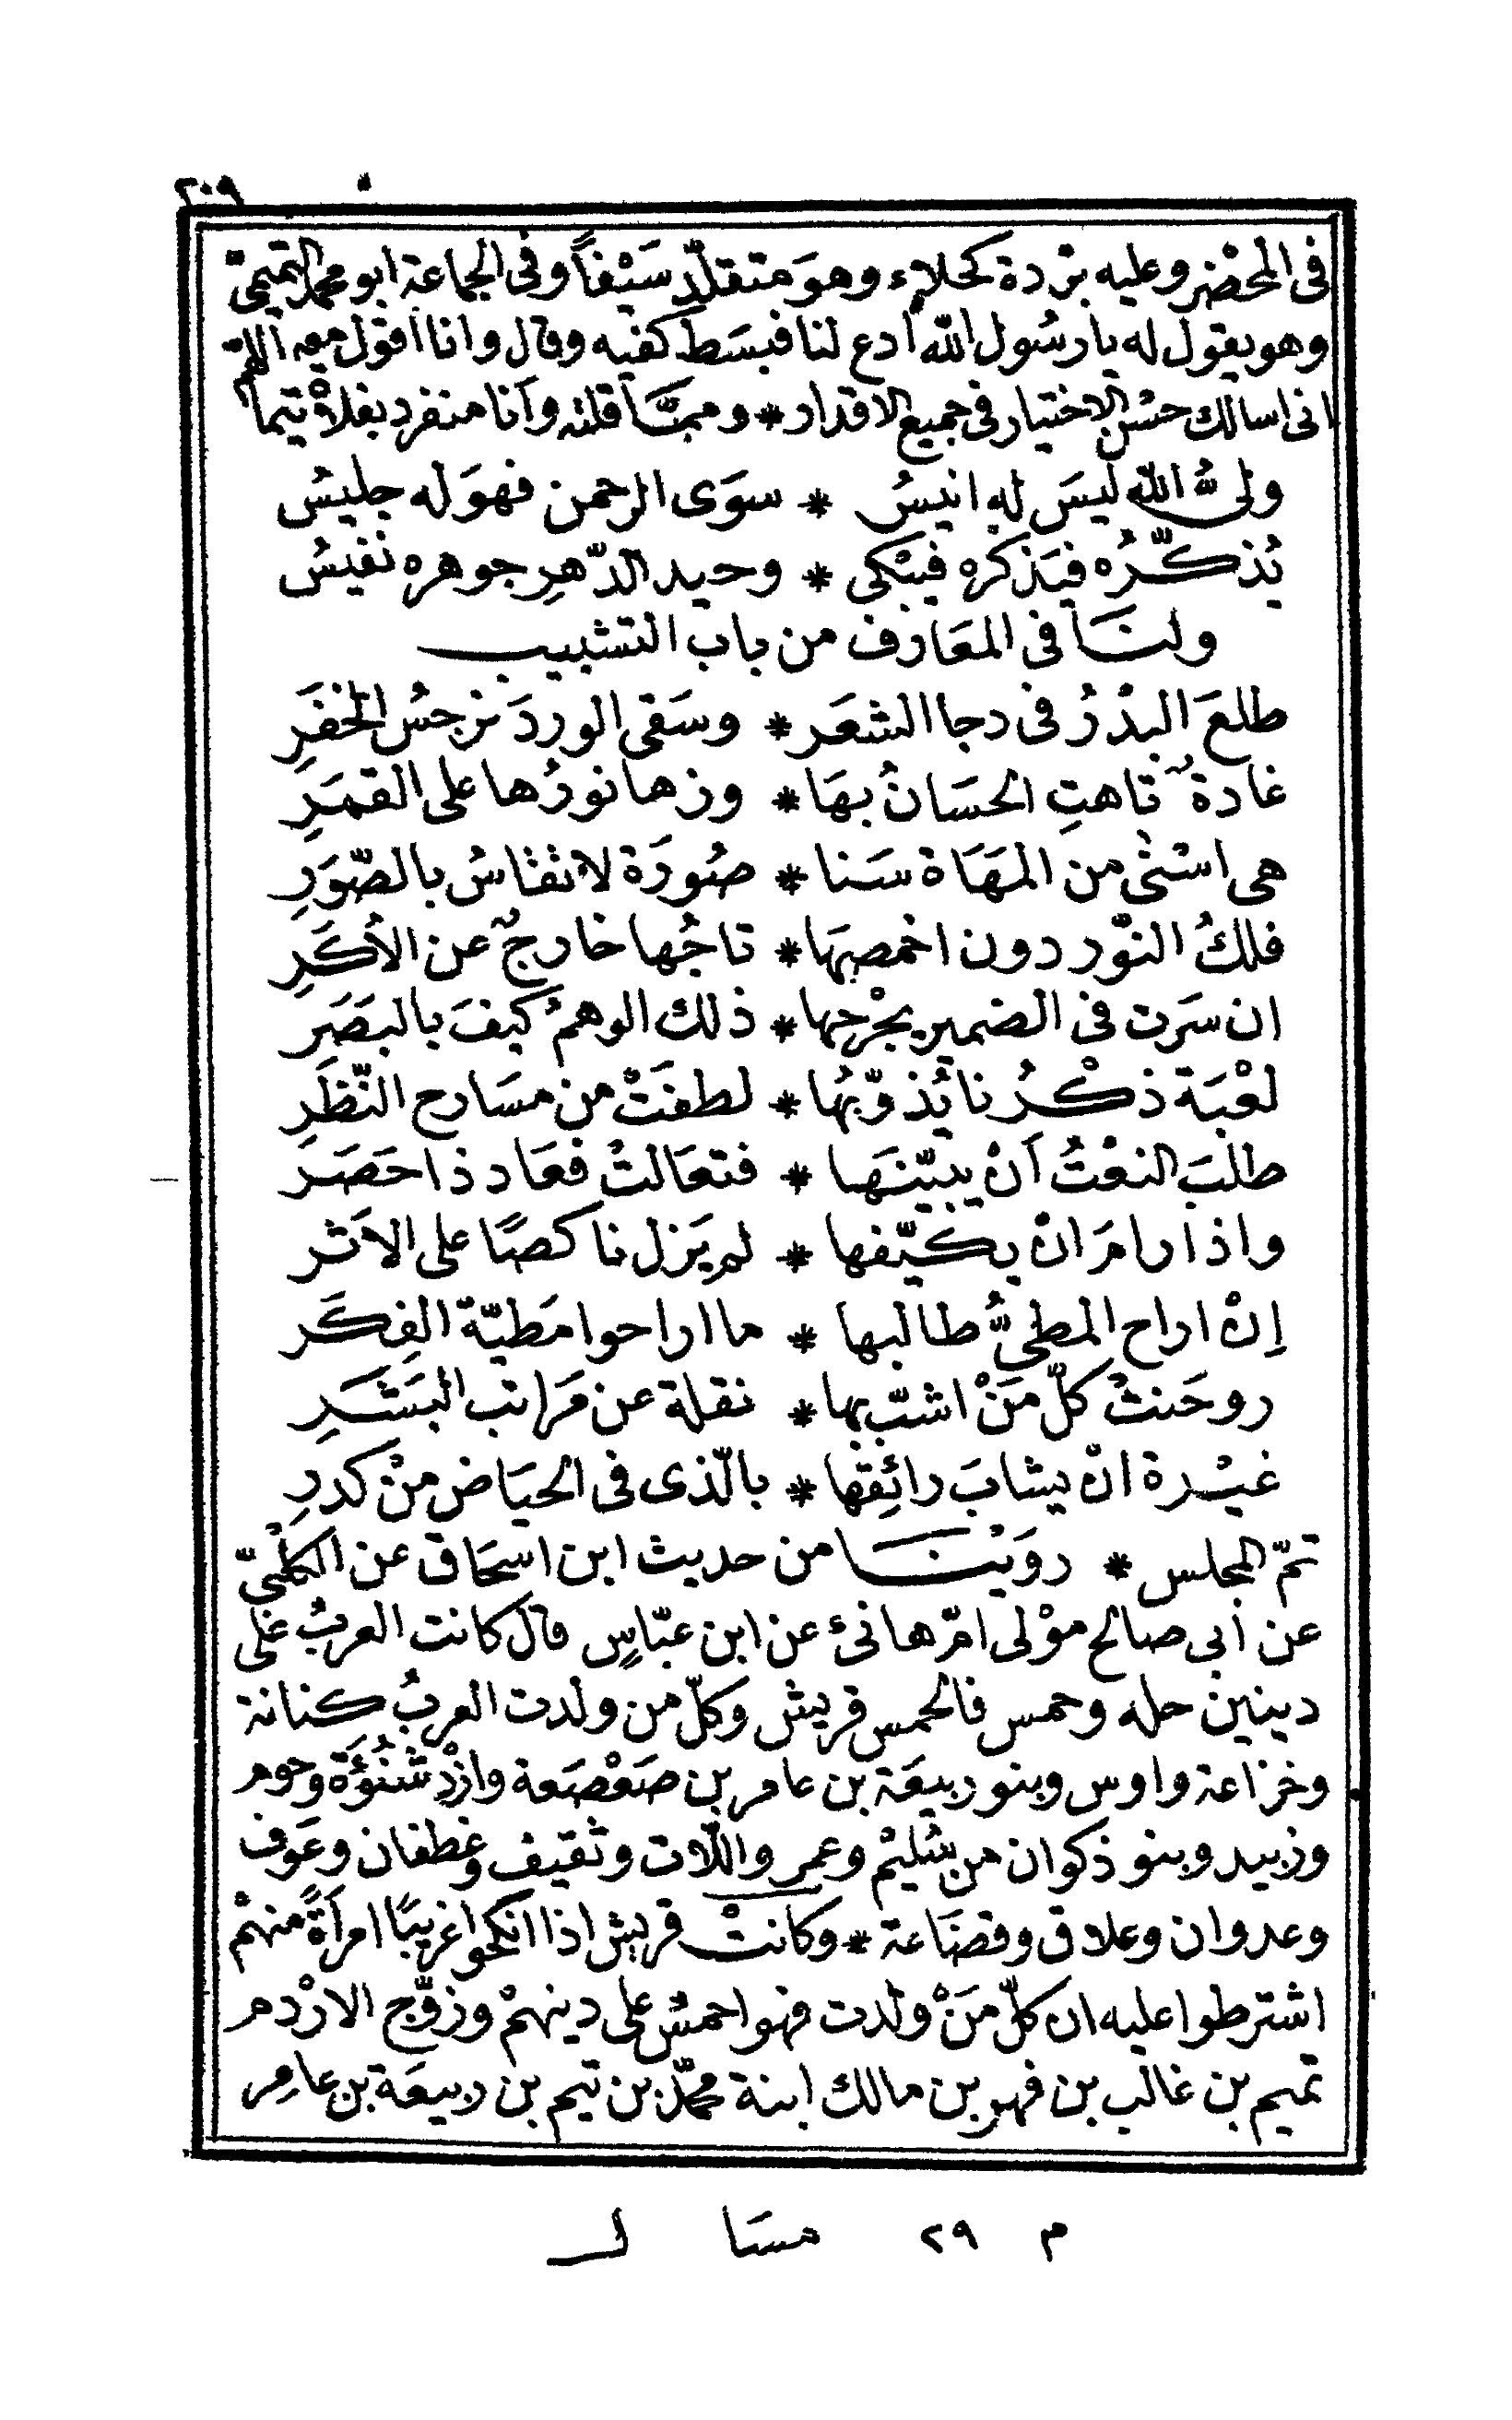 ٢٠٩
فى المحْضر وعليه بْردة كحلاء وهوَ متقلّد سَيْفاً وفى الجماعة ابو محمد التميمىّ
وهو يقول له يا رسُول الله ادع لنا فبسَط كفيه وقال وانا اقول معه اللهمّ
انى اسالك حسْن الاختيار فى جميع الاقدار * وممَّا قلته وانا منفرد بفلاة تيما
ولىُّ الله ليسَ له انيسُ * سوَى الرحمن فهوَ له جليسُ
يُذكّرُه فيَذكره فيبْكى * وحيد الدّهرِ جوهره نفيسُ
ولنَا فى المعَارف من باب التشبيب
طلعَ البدْرُ فى دجا الشعَر * وسَقى الوردَ نرجسُ الخفَرِ
غادةٌ تاهتِ الحسَانُ بهَا * وزها نورُها على القمَرِ
هى اسْنى من المهَاة سَنا * صُورَة لا تقاسُ بالصّوَرِ
فلكُ النّور دون اخمصهَا * تاجُها خارجٌ عن الأكَرِ
ان سَرَت فى الضمير يجْرحها * ذلك الوهمُ كيفَ بالبصَرِ
لعْبَة ذكْرُنا يُذوّبُها * لطفَتْ من مسَارح النّظَرِ
طلبَ النعْتُ اَنْ يبيّنهَا * فتعَالتْ فعَاد ذا حَصَر
واذا رامَ انْ يكيّفها * لم يَزل ناكصًا على الاَثر
اِنْ اراح المطىُّ طالبها * ما اراحوا مَطيّة الفِكَر
روحَنتْ كلّ مَنْ اشبّ بها * نقلة عن مَراتب البَشَرِ
غيْرة انْ يشابَ رائِقها * بالّذى فى الحيَاض منْ كدرِ
تمّ المجلس * روَيْنَا من حديث ابن اسحَاق عن الكلْبىّ
عن ابى صالح موْلى امّ هانئ عن ابن عبّاسٍ قال كانت العربُ على
دينين حله وحمس فالحمس قريش وكلّ من ولدت العربُ كنانة
وخزاعة واوس وبنو ربيعَة بن عامر بن صَعْصَعة وازْد شَنُؤَة وجوم
وزبيد وبنو ذكوان من سُليْم وعمرو اللّات وثقيف وغطفان وعَوف
وعدوان وعلاق وقضَاعة * وكانتْ قريش اذا انكحوا غريبًا امرأةً منهمْ
اشترطوا عليه ان كلّ مَنْ ولدت فهو احمسُ على دينهمْ وزوّج الادْرم
تميم بن غالب بن فهر بن مالك ابنة محمّد بن تيم بن ربيعَة بن عامِر
م ٢٩ مسَا ل